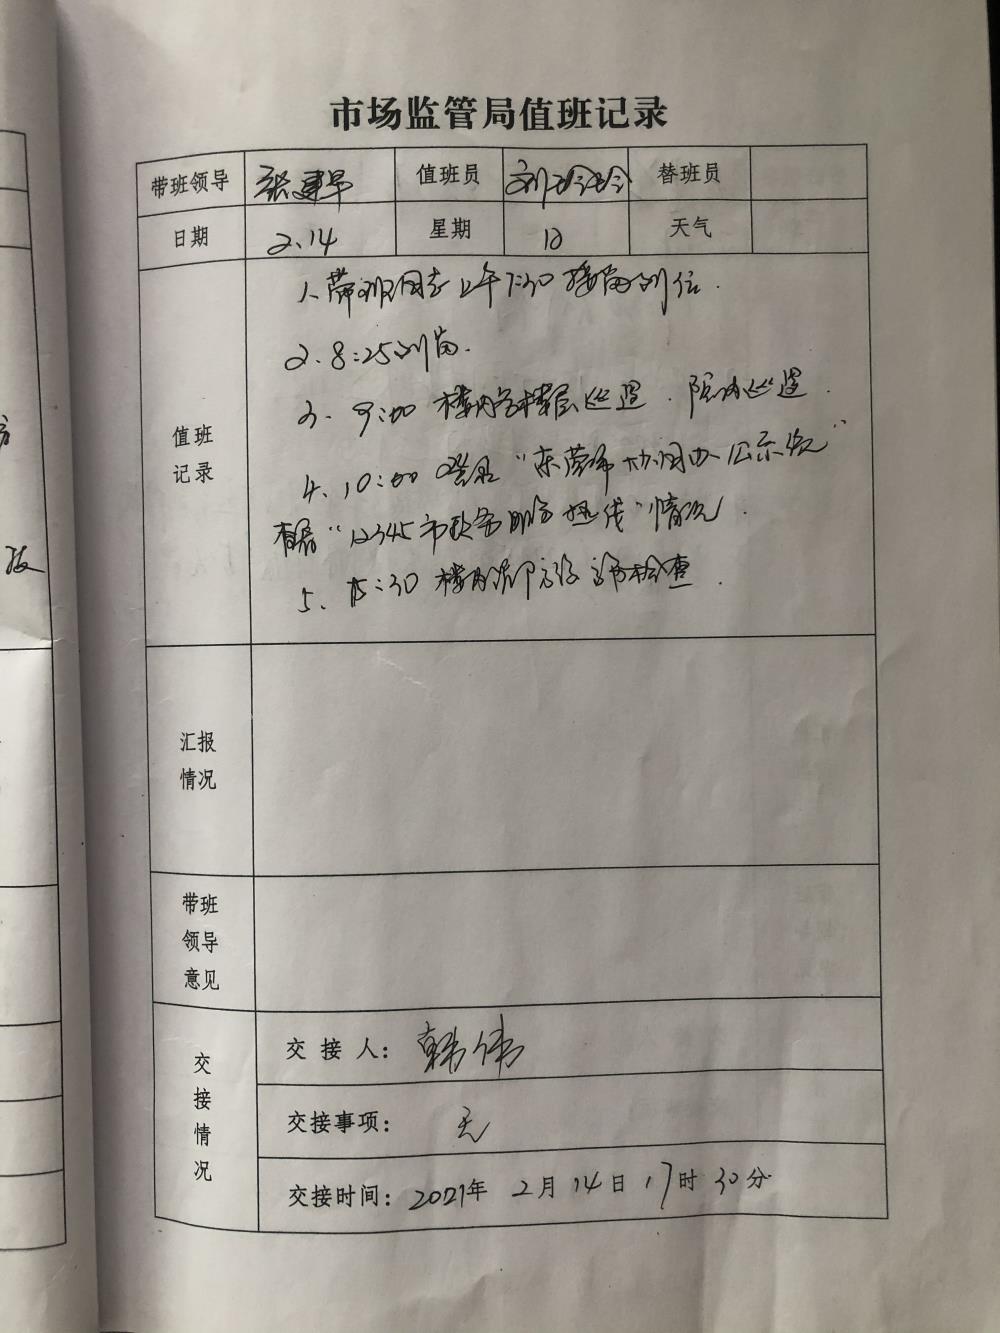 市场监管局值班记录
带班领导 张建早 值班员 刘玲玲 替班员
日期 2.14 星期 日 天气
值班
记录
1、带班同志上午7:30接岗到位.
2、8:25到岗.
3、9:00 楼内各楼层巡逻.院内巡逻.
4、10:00
“12345市政务服务热线”情况.
5、15:30 楼内消防设备检查.
汇报
情况
带班
领导
意见
交
接
情
况
交 接 人: 韩伟
交接事项: 无
交接时间: 2021年 2月 14日 17时 30分